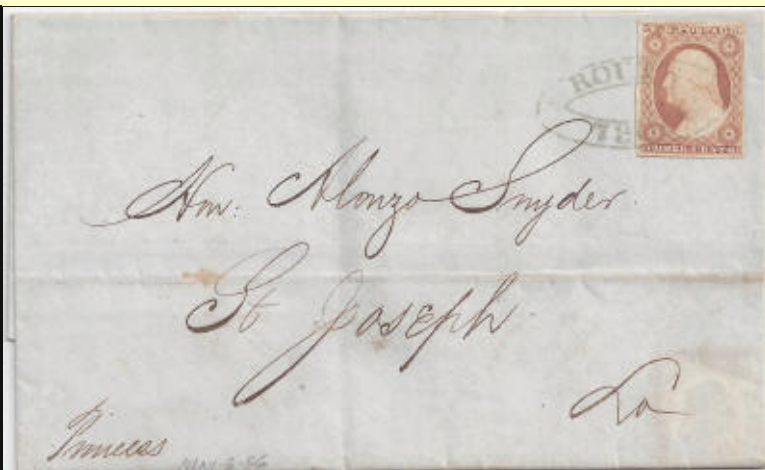 ROU
Hon. Alonzo Snyder.
St Joseph
La
Princess